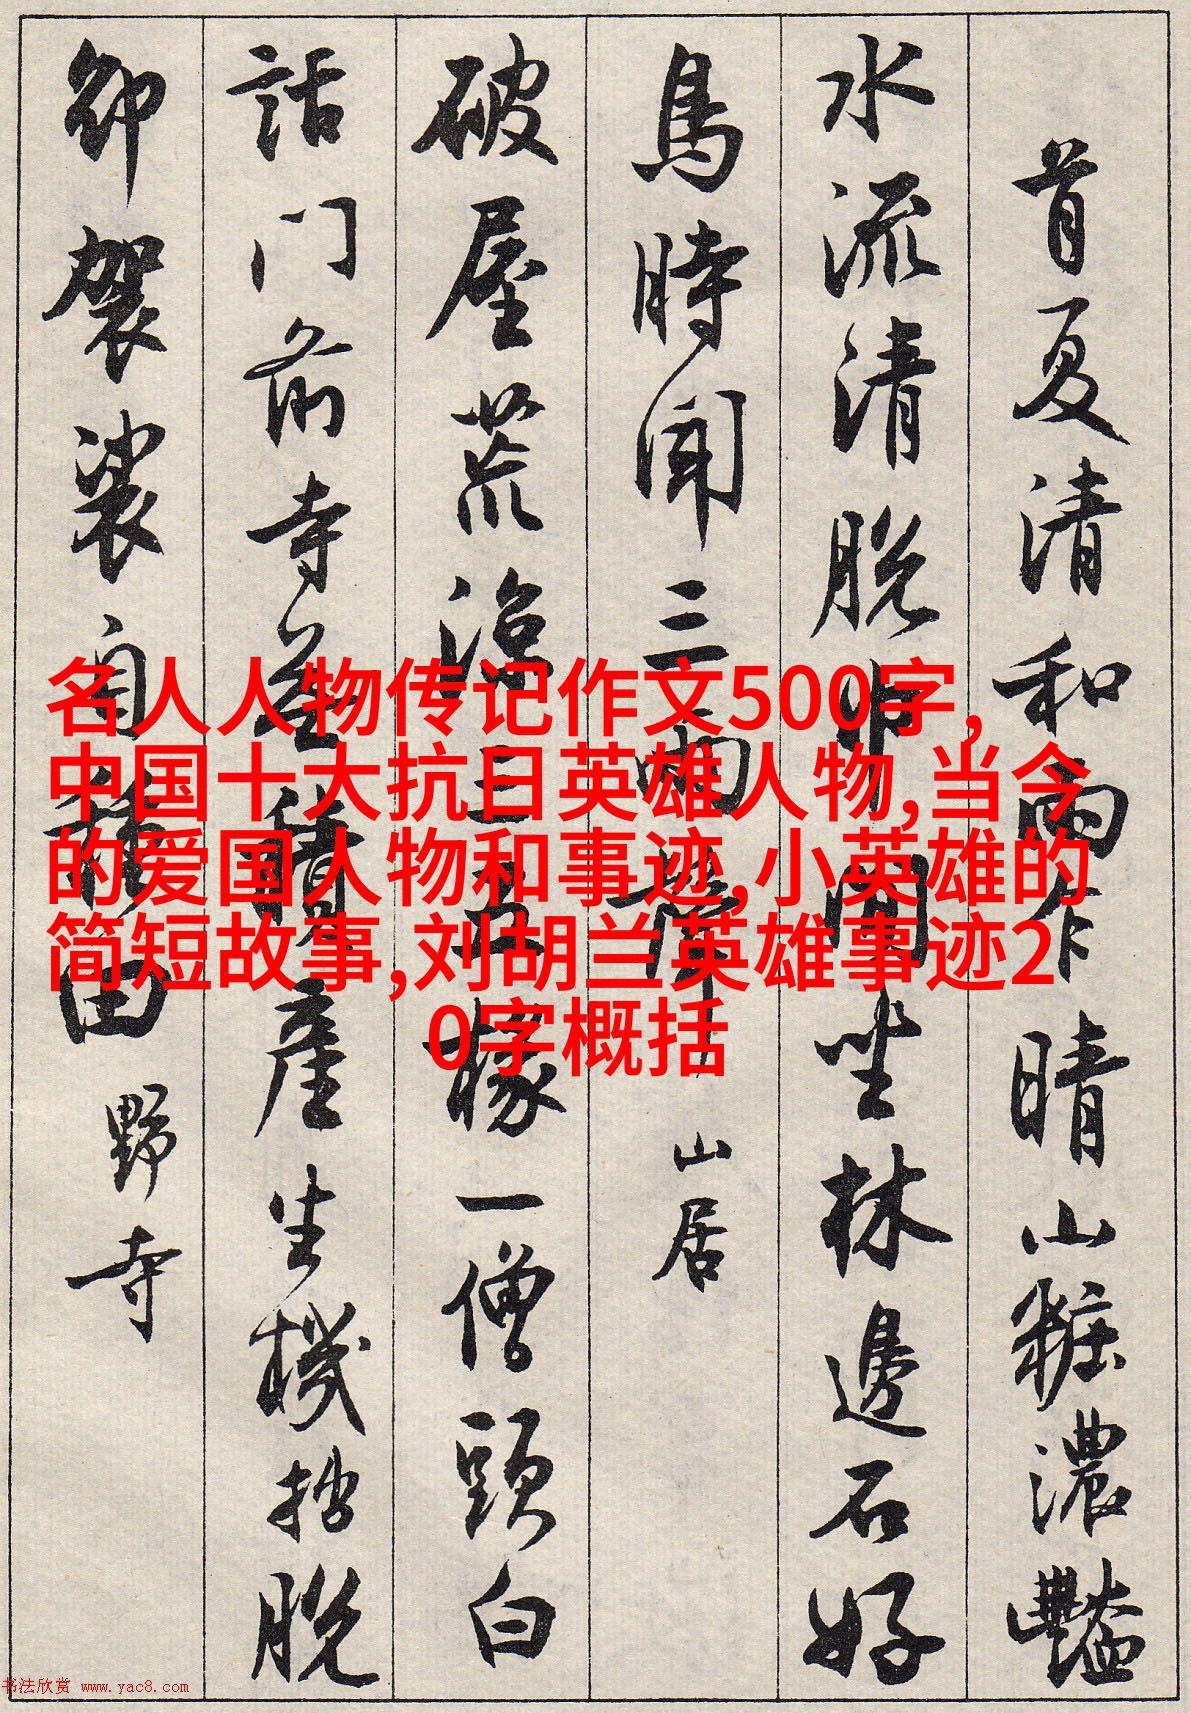 首夏清和雨乍晴山粧濃豔
水流清脱巾閑坐林邊石好
鳥時聞三兩聲
山居
破屋荒涼三五椽一僧頭白
話門前寺無積產生機拙脫
卻袈裟自種田
野寺
名人人物传记作文500字,
中国十大抗日英雄人物,当今
的爱国人物和事迹,小英雄的
简短故事,刘胡兰英雄事迹2
0字概括
书法欣赏 www.yac8.com